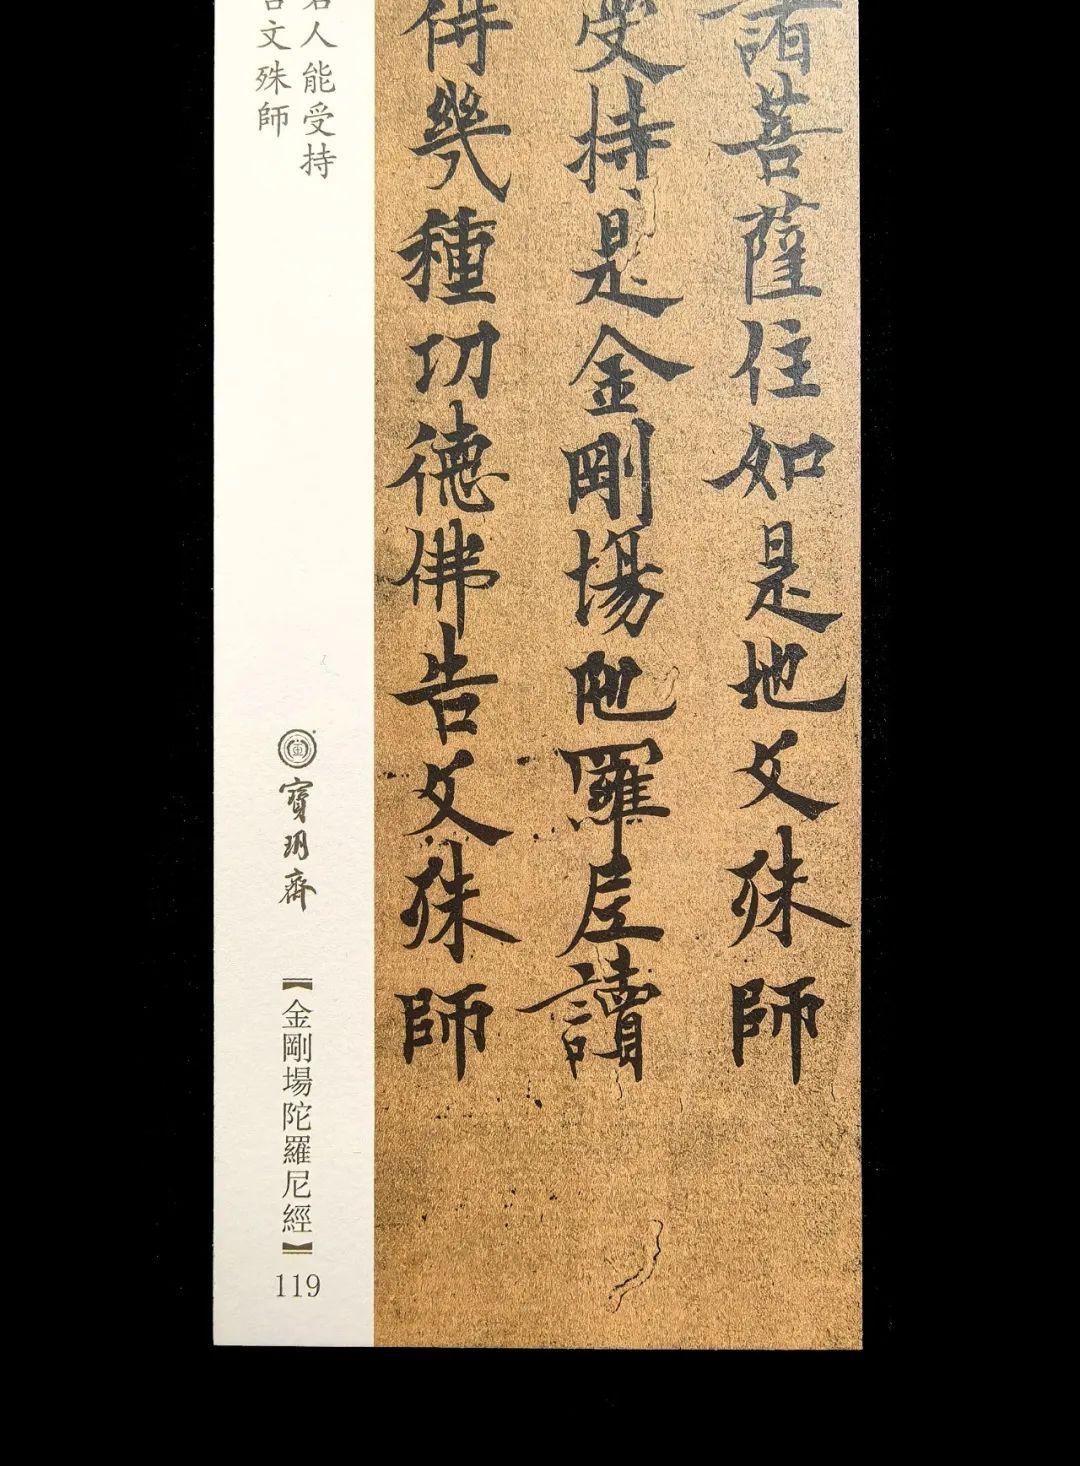 諸菩薩住如是地文殊師
受持是金剛場陁羅尼讀
得幾種功德佛告文殊師
若人能受持
告文殊師
寶玥齋
【金剛場陀羅尼經】
119